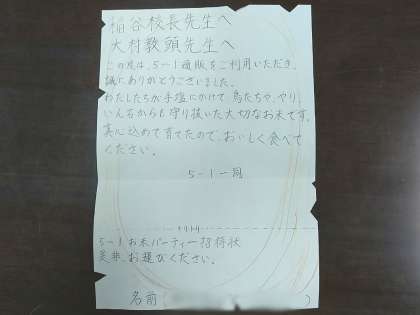 稲谷校長先生へ
大村教頭先生へ
この度は、5-1通販をご利用いただき、
誠にありがとうございました。
わたしたちが手塩にかけて鳥たちや、やり、
いんるからも守り抜いた大切なお米です。
真心込めて育てたので、おいしく食べて
ください。
5-1一同
キリトリ
5-1お米パーティー招待状
是非、お運びください。
名前（ ）